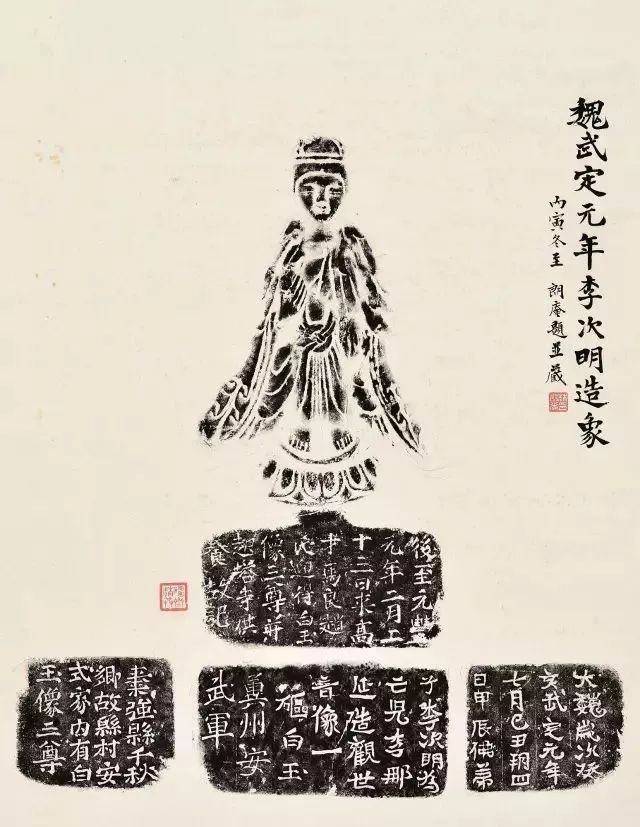 魏武定元年李次明造象
丙寅冬至 朗庵題並藏
後至元豐
元年二月
十三日來高
馬良趙
處迎得白玉
像三尊莊
塔寺供
養故記
大魏歲次癸
亥武定元年
七月己丑朔四
日甲辰佛弟
子李次明為
亡兄李那
延造觀世
音像一
軀白玉
冀州安
武軍
棗強縣千秋
鄉故縣村安
式家內有白
玉像三尊